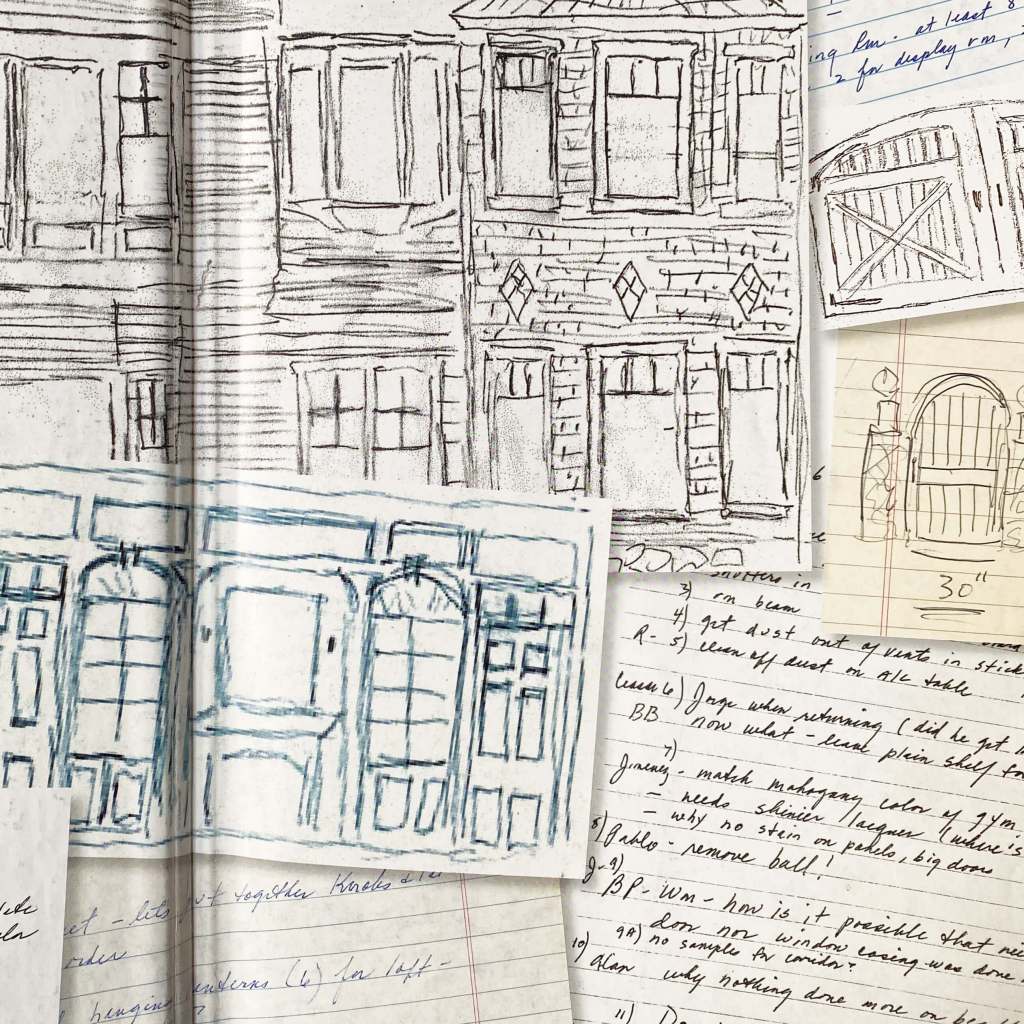 Rm. at least 8
2 for display rm,
30"
shutters in
3) on beam
4) get dust out of vents in stick
R- 5) clean off dust on A/C table
6) Jorge when returning (did he get
BB now what - leave plain shelf for
7)
Jimenez - match mahogany color of gym.
- needs shinier lacquer (where's
- why no stain on panels, big doors
8) Pablo - remove ball!
J- 9)
BP - Wm - how is it possible that
door nor window casing was done
9A) no samples for corridor?
10) Alan why nothing done more on
11)
- lets put together Knobs
order
hanging lanterns (6) for loft -